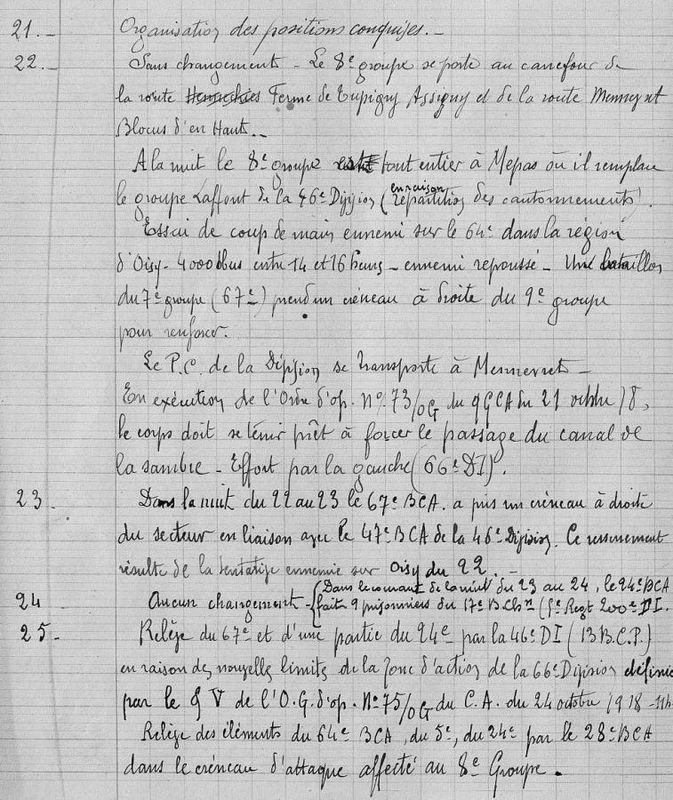 21. - Organisation des positions conquises. -
22. - Sans changement - Le 8e groupe se porte au carrefour de
la route Hennechies Ferme de Tupigny Assigny et de la route Mennevret
Blocus d'en Haut. -
A la nuit le 8e groupe tout entier à Mepas où il remplace
le groupe Laffont de la 46e Division (en raison répartition des cantonnements).
Essai de coup de main ennemi sur le 64e dans la région
d'Oisy - 4000 obus entre 14 et 16 heures - ennemi repoussé - Un bataillon
du 7e groupe (67e) prend un créneau à droite du 9e groupe
pour renforcer.
Le P.C. de la Division se transporte à Mennevret -
En exécution de l'Ordre d'op. No 73/OG du 9 GCA du 21 octobre 18,
le corps doit se tenir prêt à forcer le passage du canal de
la Sambre - Effort par la gauche (66e DI).
23 Dans la nuit du 22 au 23 le 67e BCA. a pris un créneau à droite
du secteur en liaison avec le 47e BCA de la 46e Division. Ce resserrement
résulte de la tentative ennemie sur Oisy du 22. -
24 Aucun changement - (Dans le courant de la nuit du 23 au 24, le 24e BCA
fait 9 prisonniers du 17e B. Chrs (Je Regt 200e D.I.
25 - Relève du 67e et d'une partie du 24e par la 46e DI (13 B.C.P.)
en raison des nouvelles limites de la zone d'action de la 66e Division définie
par le § V de l'O.G. d'op. No 75/OG du C.A. du 24 octobre 1918 - 11h
Relève des éléments du 64e BCA, du 5e, du 24e par le 28e BCA
dans le créneau d'attaque affecté au 8e Groupe.